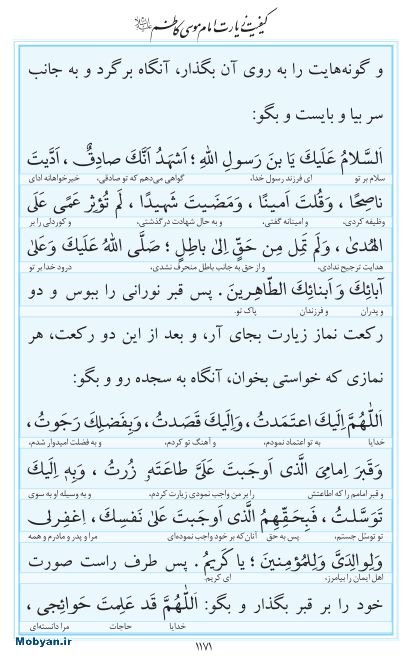 کیفیت زیارت امام موسی کاظم علیه‌السلام
و گونه‌هایت را به روی آن بگذار، آنگاه برگرد و به جانب
سر بیا و بایست و بگو:
اَلسَّلامُ عَلَیكَ یَا بنَ رَسولِ اللهِ ؛ اَشهَدُ اَنَّكَ صادِقٌ ، اَدَّیتَ
سلام بر تو ای فرزند رسول خدا، گواهی می‌دهم که تو صادقی، خیرخواهانه ادای
ناصِحًا ، وَقُلتَ اَمینًا ، وَمَضَیتَ شَهیدًا ، لَم تُؤثِر عَمًی عَلَی
وظیفه کردی، و امینانه گفتی، و به حال شهادت درگذشتی، و کوردلی را بر
الهُدیٰ ، وَلَم تَمِل مِن حَقٍّ اِلیٰ باطِلٍ ؛ صَلَّی اللهُ عَلَیكَ وَعَلیٰ
هدایت ترجیح ندادی، و از حق به جانب باطل منحرف نشدی، درود خدا بر تو
آبائِكَ وَ اَبنائِكَ الطّاهِرینَ . پس قبر نورانی را ببوس و دو
و پدران و فرزندان پاک تو.
رکعت نماز زیارت بجای آر، و بعد از این دو رکعت، هر
نمازی که خواستی بخوان، آنگاه به سجده رو و بگو:
اَللّٰهُمَّ اِلَیكَ اعتَمَدتُ ، وَاِلَیكَ قَصَدتُ ، وَبِفَضلِكَ رَجَوتُ ،
خدایا به تو اعتماد نمودم، و آهنگ تو کردم، و به فضلت امیدوار شدم،
وَقَبرَ اِمامِیَ الَّذی اَوجَبتَ عَلَیَّ طاعَتَهٗ زُرتُ ، وَبِهٖ اِلَیكَ
و قبر امامم را که اطاعتش را بر من واجب نمودی زیارت کردم، و به وسیله او به سوی
تَوَسَّلتُ ، فَبِحَقِّهِمُ الَّذی اَوجَبتَ عَلیٰ نَفسِكَ ، اِغفِر لی
تو توسّل جستم، پس به حق آنان که بر خود واجب نموده‌ای مرا و پدر و مادرم و همه
وَلِوالِدَیَّ وَلِلمُؤمِنینَ ؛ یا کَریمُ . پس طرف راست صورت
اهل ایمان را بیامرز، ای کریم.
خود را بر قبر بگذار و بگو: اَللّٰهُمَّ قَد عَلِمتَ حَوائِجی ،
خدایا حاجات مرا دانسته‌ای
۱۱۷۱
Mobyan.ir